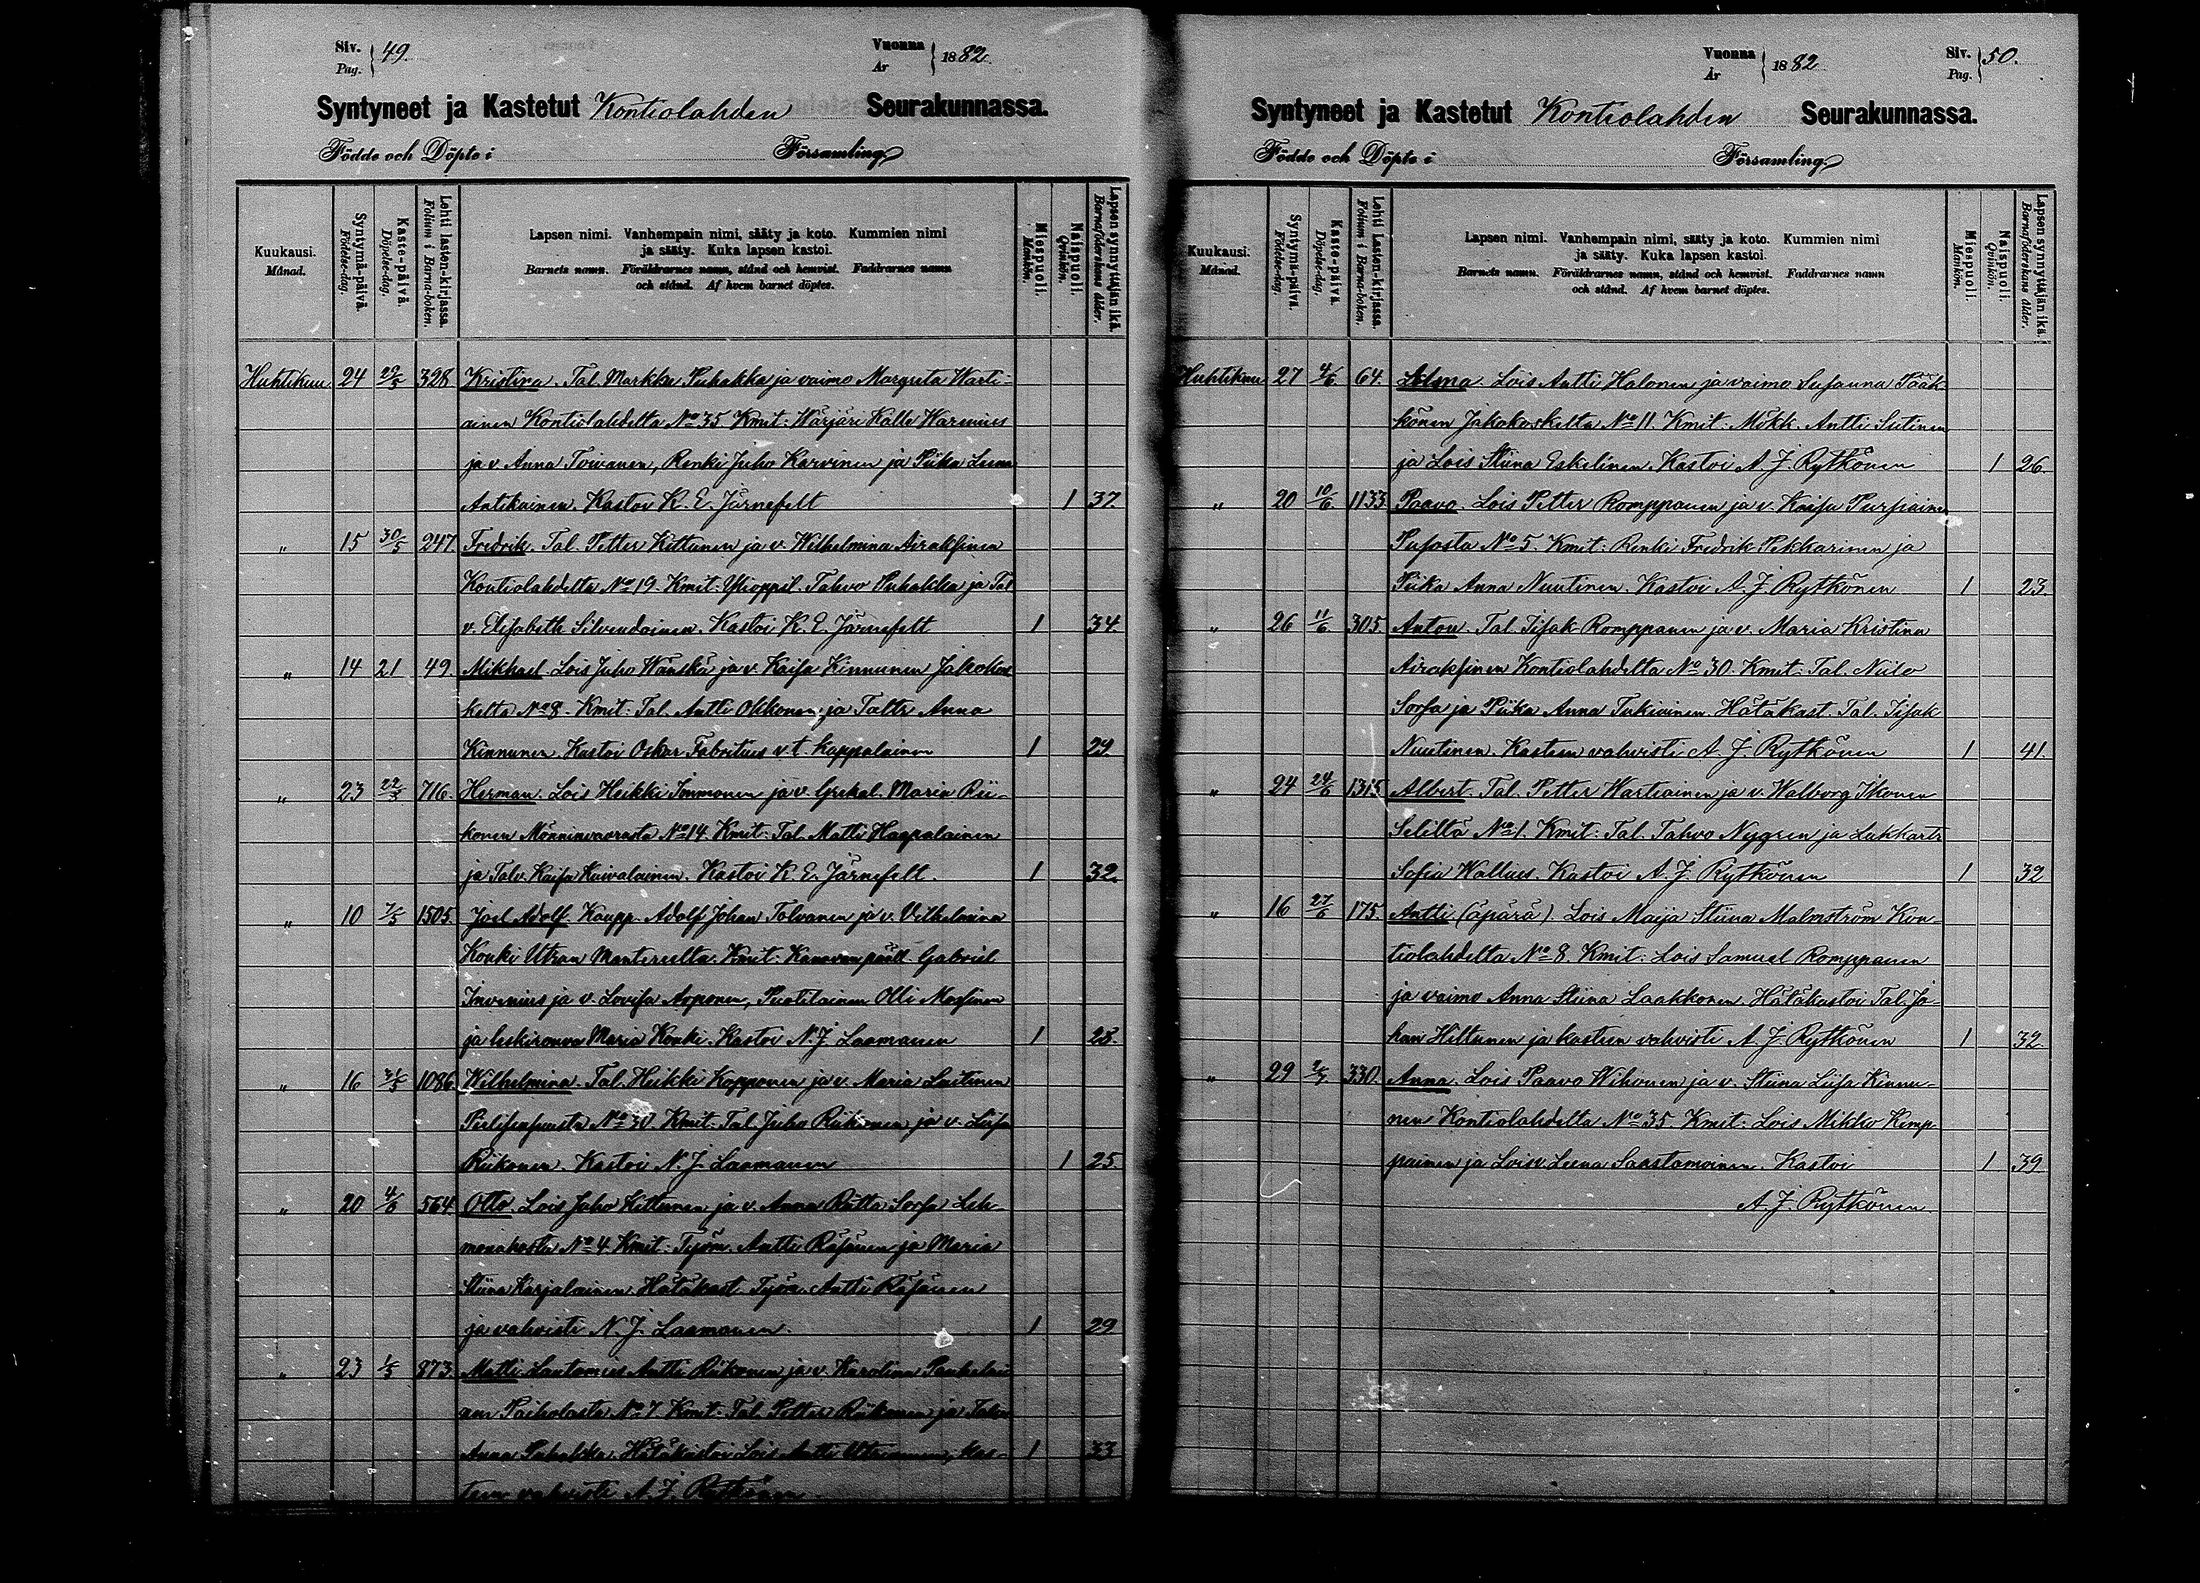 Siv. Pag. 49.
Vuonna År 1882
Syntyneet ja Kastetut Kontiolahden Seurakunnassa.
Födde och Döpte i Församling
Kuukausi. Månad.
Syntymä-päivä. Födelse-dag.
Kaste-päivä. Döpelse-dag.
Lehti lasten-kirjassa. Folium i Barna-boken.
Lapsen nimi. Vanhempain nimi, sääty ja koto. Kummien nimi
ja sääty. Kuka lapsen kastoi.
Barnets namn. Föräldrarnes namn, stånd och hemvist. Faddrarnes namn
och stånd. Af hvem barnet döptes.
Miespuoli. Mankön.
Naispuoli. Qvinkön.
Lapsen synnyttäjän ikä. Barnaföderskans ålder.
Huhtikuu 24 29/5 328 Kristina. Tal. Markku Puhakka ja vaimo Margreta Warti-
ainen Kontiolahdelta No 35 Kmit: Wärjäri Kalle Warenius
ja v. Anna Toivanen, Renki Juho Karvinen ja Piika Leena
Antikainen. Kastoi K. E. Järnefelt 1 37.
" 15 30/5 247 Fredrik. Tal. Petter Kittunen ja v. Wilhelmina Airaksinen
Kontiolahdelta No 19. Kmit: Ylioppil. Tahvo Puhakka ja Tal
v. Elisabeth Silvendoinen. Kastoi K. E. Järnefelt 1 34.
" 14 21 49. Mikhael. Lois Juho Wänskä ja v. Kaisa Kinnunen Jakokos
kelta No 8. Kmit: Tal. Antti Okkonen ja Taltr Anna
Kinnunen. Kastoi Oskar Fabritius v.t. kappalainen 1 29.
" 23 22/5 716. Herman. Lois Heikki Immonen ja v. Grekal. Maria Rii-
konen Mönninvaarasta No 14. Kmit: Tal. Matti Haapalainen
ja Talv. Kaisa Kuivalainen. Kastoi K. E. Järnefelt. 1 32.
" 10 7/5 1505. Joel Adolf. Kaupp. Adolf Johan Tolvanen ja v. Vilhelmina
Konki Utran Mantereelta. Kmit: Kanavan pääll. Gabriel
Invenius ja v. Lovisa Arponen, Puotilainen Olli Massinen
ja leskirouva Maria Konki. Kastoi N. J. Laamanen 1 28.
" 16 31/5 1086. Wilhelmina. Tal. Heikki Kopponen ja v. Maria Laitinen
No 30. Kmit: Tal Juho Riikonen ja v. Liisa
Riikonen. Kastoi N. J. Laamanen 1 25.
" 20 4/6 564. Otto. Lois Juho Kittunen ja v. Anna Riitta Sorsa Leh-
No 4 Kmit: Työm. Antti Räsänen ja Maria
Stiina Karjalainen. Hätäkast. Työm. Antti Räsänen
ja vahvisti N. J. Laamanen. 1 29
" 23 1/5 873. Matti. Lautamies Antti Riikonen ja v. Karolina
Paiholasta No 7. Kmit: Tal. Petter Riikonen ja Talv.
Anna Puhakka. Hätäkastoi Lois Antti Utriainen, Kas- 1 33
teen vahvisti A. J. Rytkönen
Vuonna År 1882
Siv. Pag. 50.
Syntyneet ja Kastetut Kontiolahden Seurakunnassa.
Födde och Döpte i Församling
Kuukausi. Månad.
Syntymä-päivä. Födelse-dag.
Kaste-päivä. Döpelse-dag.
Lehti lasten-kirjassa. Folium i Barna-boken.
Lapsen nimi. Vanhempain nimi, sääty ja koto. Kummien nimi
ja sääty. Kuka lapsen kastoi.
Barnets namn. Föräldrarnes namn, stånd och hemvist. Faddrarnes namn
och stånd. Af hvem barnet döptes.
Miespuoli. Mankön.
Naispuoli. Qvinkön.
Lapsen synnyttäjän ikä. Barnaföderskans ålder.
Huhtikuu 27 4/6 64. Alma. Lois Antti Halonen ja vaimo Susanna Pääk-
könen Jakokoskelta No 11. Kmit: Mökk. Antti Sutinen
ja Lois Stiina Eskelinen. Kastoi A. J. Rytkönen 1 26.
" 20 10/6 1133 Paavo. Lois Petter Romppanen ja v. Kaisa Pursiainen
Pusosta No 5. Kmit: Renki Fredrik Pekkarinen ja
Piika Anna Nuutinen. Kastoi A. J. Rytkönen 1 23.
" 26 11/6 305. Anton. Tal. Iisak Romppanen ja v. Maria Kristina
Airaksinen Kontiolahdelta No 30. Kmit: Tal. Niilo
Sorsa ja Piika Anna Tukiainen. Hätäkast. Tal. Iisak
Nuutinen. Kasteen vahvisti A. J. Rytkönen 1 41.
" 24 24/6 1315 Albert. Tal. Petter Wartiainen ja v. Walborg Ikonen
Seliltä No 1. Kmit: Tal. Tahvo Nygren ja Lukkartr
Sofia Wallius. Kastoi A. J. Rytkönen 1 32
" 16 27/6 175. Antti (äpärä). Lois Maija Stiina Malmström Kon-
tiolahdelta No 8. Kmit: Lois Samuel Romppanen
ja vaimo Anna Stiina Laakkonen. Hätäkastoi Tal. Jo-
han Hiltunen ja kasteen vahvisti A. J. Rytkönen 1 32.
" 29 2/7 330. Anna. Lois Paavo Wihonen ja v. Stiina Liisa Kinnu-
nen Kontiolahdelta No 35. Kmit: Lois Mikko Kimp-
painen ja Loisv. Leena Saastamoinen. Kastoi 1 39
A. J. Rytkönen